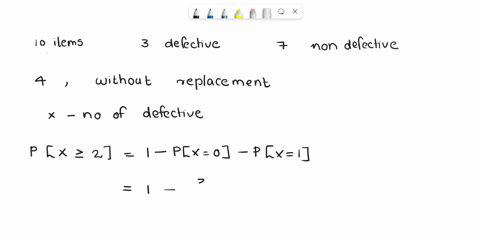 10 items 3 defective 7 non defective
4 , without replacement
x - no of defective
P [x ≥ 2] = 1 - P[x=0] - P[x=1]
= 1 -